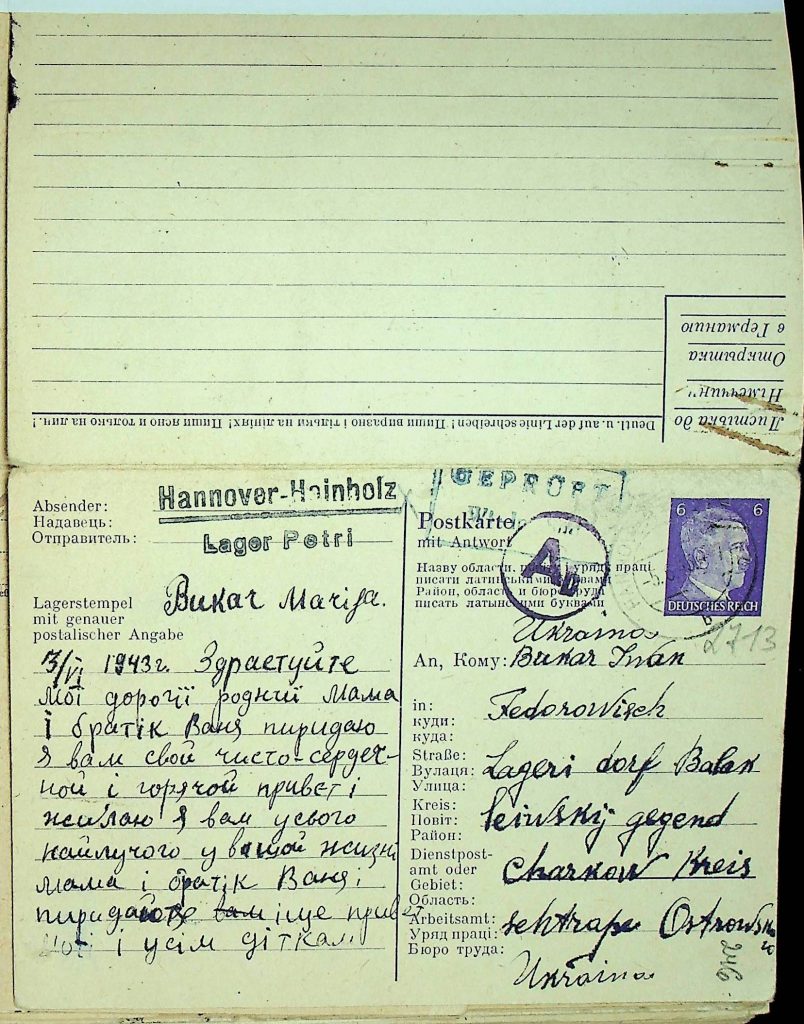 Deutl. u. auf der Linie schreiben! Пиши виразно і тільки на лініях! Пиши ясно и только на лин.!
Листівка до
Німеччини
Открытка
в Германию
Absender:
Надавець:
Отправитель:
Hannover-Hainholz
Lager Petri
Lagerstempel
mit genauer
postalischer Angabe
Викаг Marija.
7/VI 1943г. Здрастуйте
мої дорогії роднії мама
і братік Ваня пиридаю
я вам свой чисто-сердеч-
ной і горячой привєт і
жилаю я вам усього
найлучого у вашой жизні
мама і братік Ваня і
пиридайоте вам іще прив
і усім діткам
GEPRÜFT
Postkarte
mit Antwort
Ab
Назву области, уряд праці
писати латинськими буквами
Район, область и бюро труда
писать латынскими буквами
6 6
DEUTSCHES REICH
2713
Ukraina
An, Кому: Bukar Iwan
in:
куди:
куда:
Fedorowisch
Straße:
Вулиця:
Улица:
Lageri dorf Balak
Kreis:
Повіт:
Район:
leiwskij gegend
Dienstpost-
amt oder
Gebiet:
Область:
Charkow Kreis
Arbeitsamt:
Уряд праці:
Бюро труда:
Ukraina
246